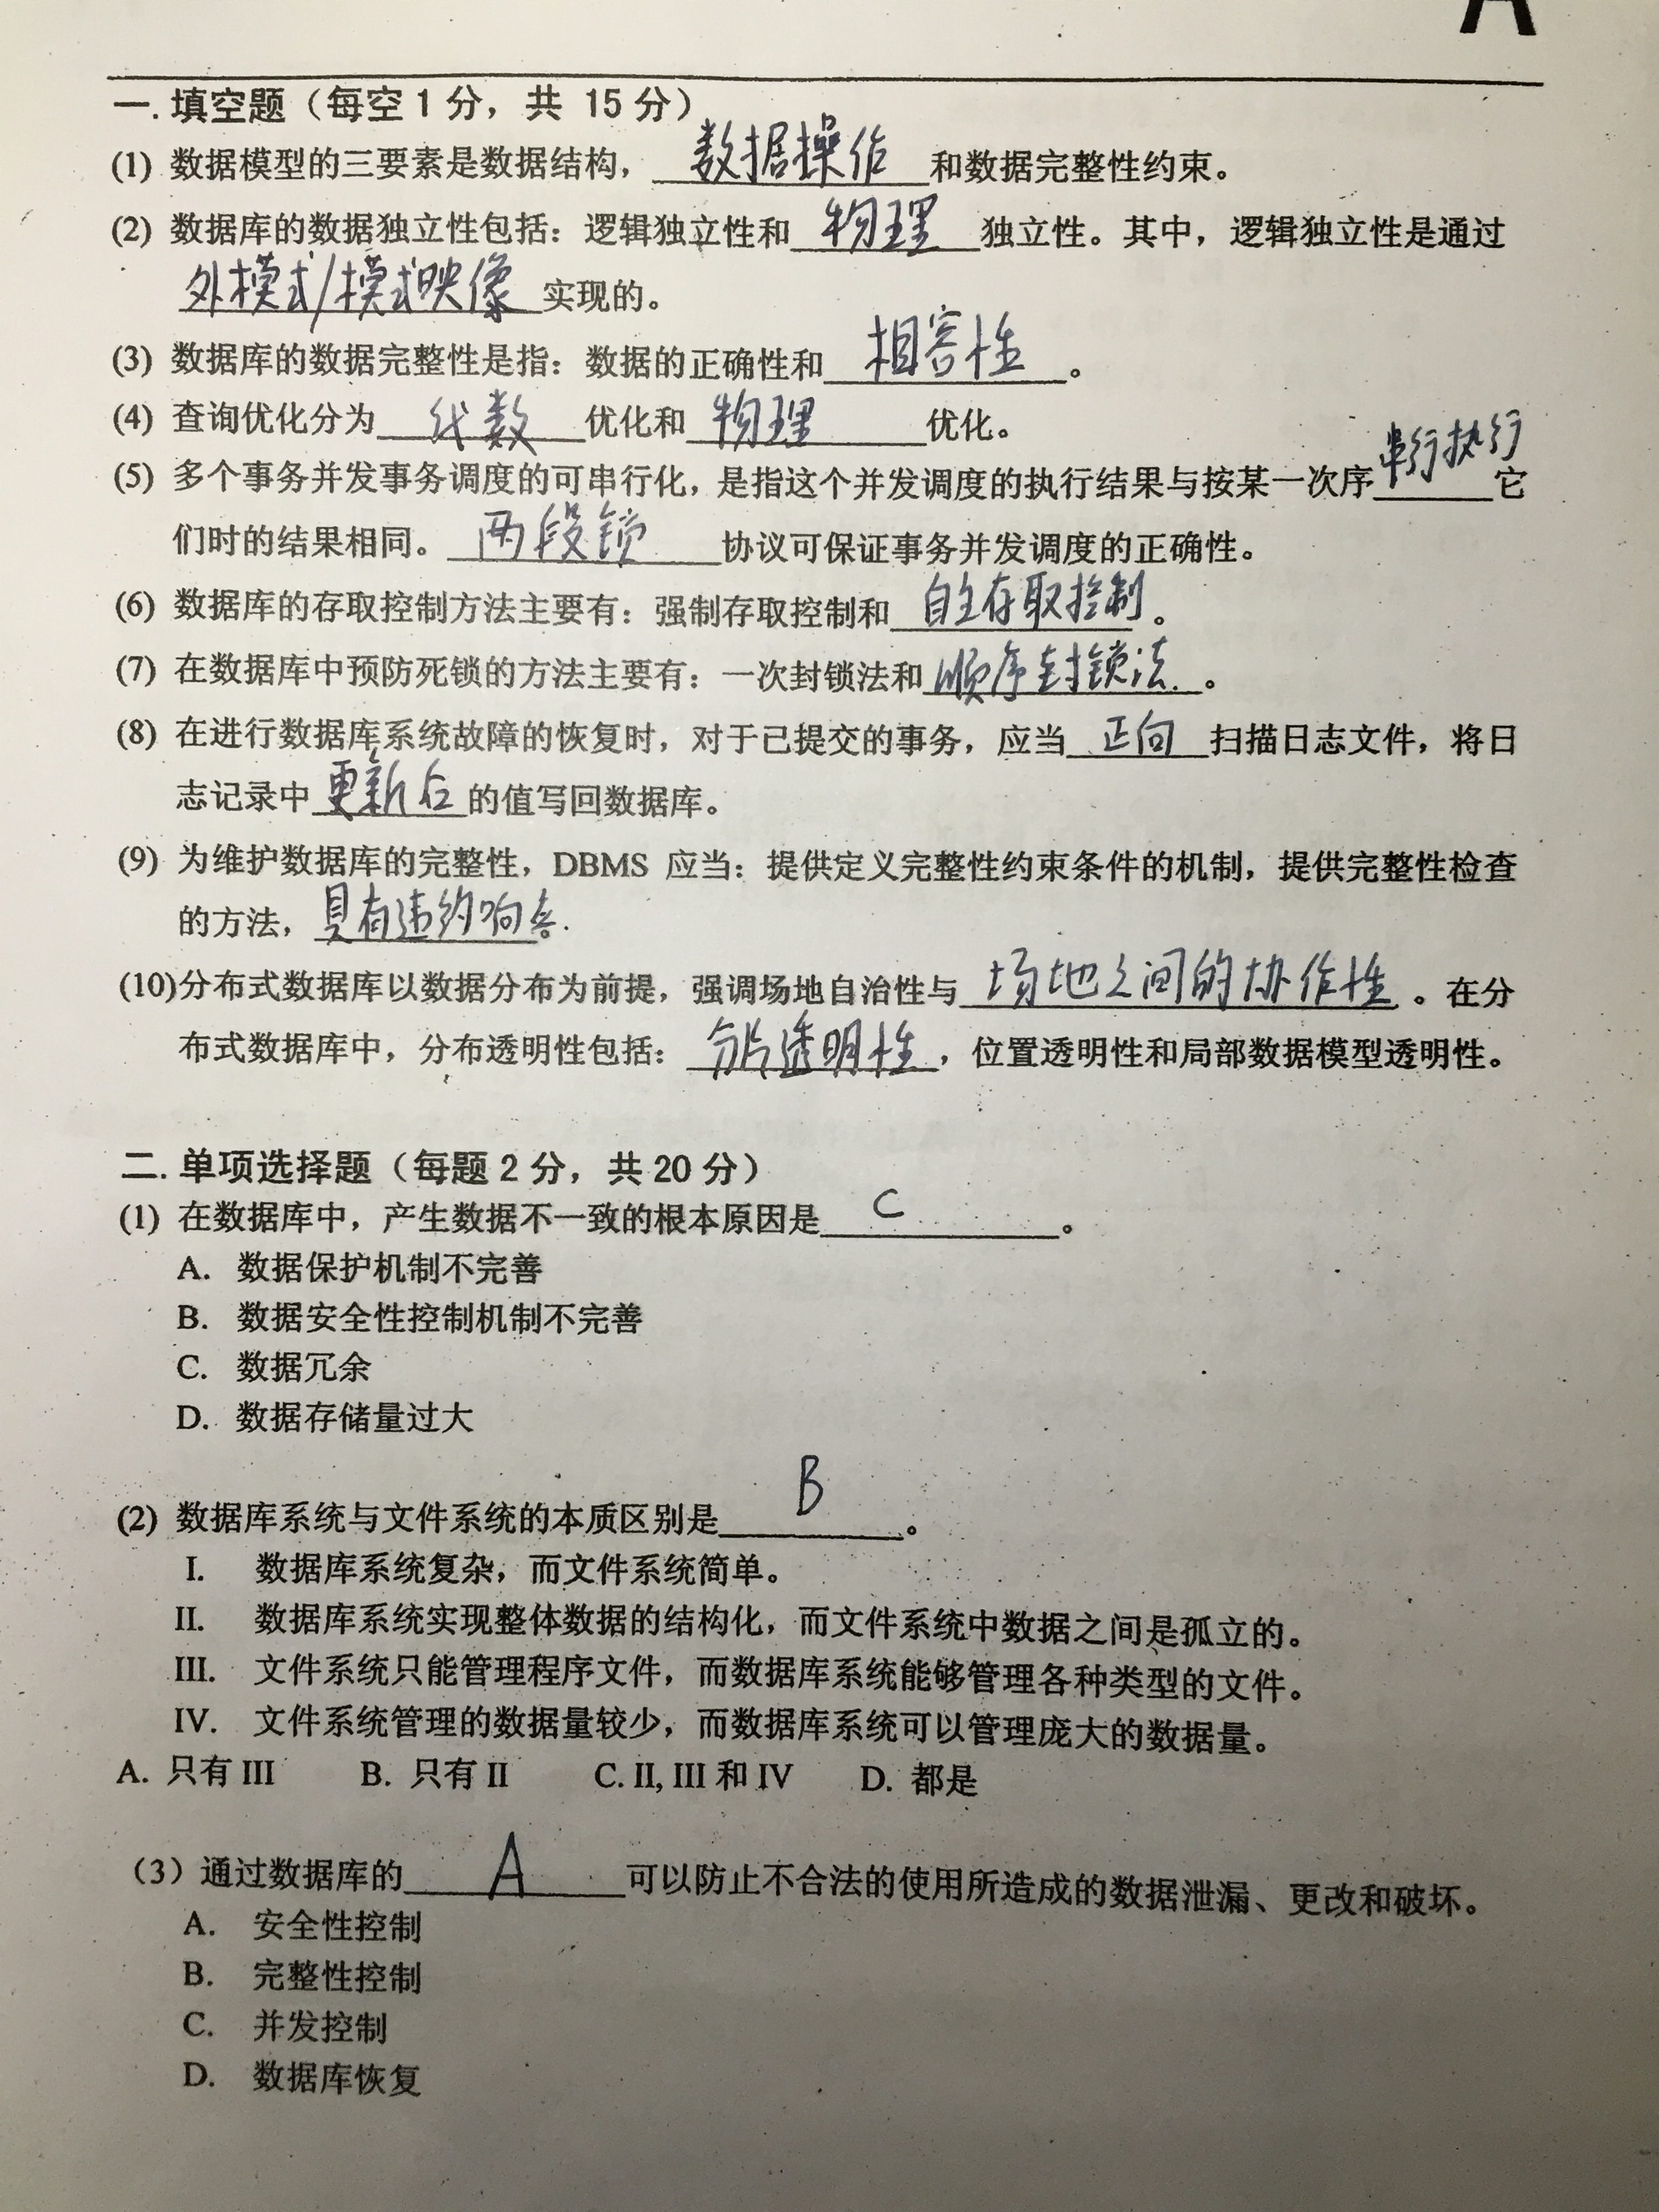 A
一. 填空题（每空1分，共 15分）
(1) 数据模型的三要素是数据结构，数据操作和数据完整性约束。
(2) 数据库的数据独立性包括：逻辑独立性和物理独立性。其中，逻辑独立性是通过
外模式/模式映像实现的。
(3) 数据库的数据完整性是指：数据的正确性和相容性。
(4) 查询优化分为代数优化和物理优化。
(5) 多个事务并发事务调度的可串行化，是指这个并发调度的执行结果与按某一次序串行执行它
们时的结果相同。两段锁协议可保证事务并发调度的正确性。
(6) 数据库的存取控制方法主要有：强制存取控制和自主存取控制。
(7) 在数据库中预防死锁的方法主要有：一次封锁法和顺序封锁法。
(8) 在进行数据库系统故障的恢复时，对于已提交的事务，应当正向扫描日志文件，将日
志记录中更新后的值写回数据库。
(9) 为维护数据库的完整性，DBMS 应当：提供定义完整性约束条件的机制，提供完整性检查
的方法，具有违约响应。
(10)分布式数据库以数据分布为前提，强调场地自治性与场地之间的协作性。在分
布式数据库中，分布透明性包括：分片透明性，位置透明性和局部数据模型透明性。
二. 单项选择题（每题2分，共20分）
(1) 在数据库中，产生数据不一致的根本原因是 C 。
A. 数据保护机制不完善
B. 数据安全性控制机制不完善
C. 数据冗余
D. 数据存储量过大
(2) 数据库系统与文件系统的本质区别是 B 。
I. 数据库系统复杂，而文件系统简单。
II. 数据库系统实现整体数据的结构化，而文件系统中数据之间是孤立的。
III. 文件系统只能管理程序文件，而数据库系统能够管理各种类型的文件。
IV. 文件系统管理的数据量较少，而数据库系统可以管理庞大的数据量。
A. 只有 III B. 只有 II C. II, III 和 IV D. 都是
（3）通过数据库的 A 可以防止不合法的使用所造成的数据泄漏、更改和破坏。
A. 安全性控制
B. 完整性控制
C. 并发控制
D. 数据库恢复